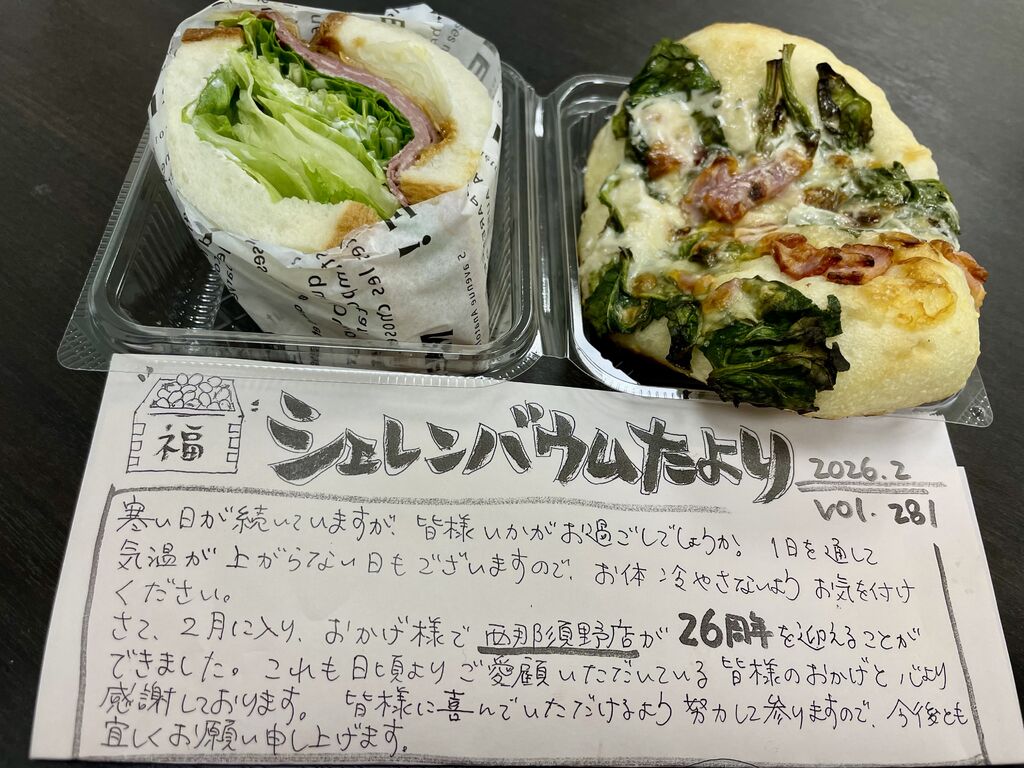 福
シェレンバウムたより
2026.2
VOl. 281
寒い日が続いていますが、皆様いかがお過ごしでしょうか。1日を通して
気温が上がらない日もございますので、お体冷やさないようお気を付け
ください。
さて、2月に入り、おかげ様で西那須野店が26周年を迎えることが
できました。これも日頃よりご愛顧いただいている皆様のおかげと心より
感謝しております。皆様に喜んでいただけるよう努力して参りますので、今後とも
宜しくお願い申し上げます。